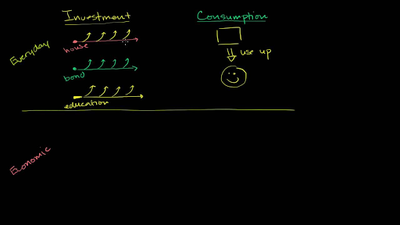 Investment
Consumption
Everyday
house
use up
bond
education
Economic